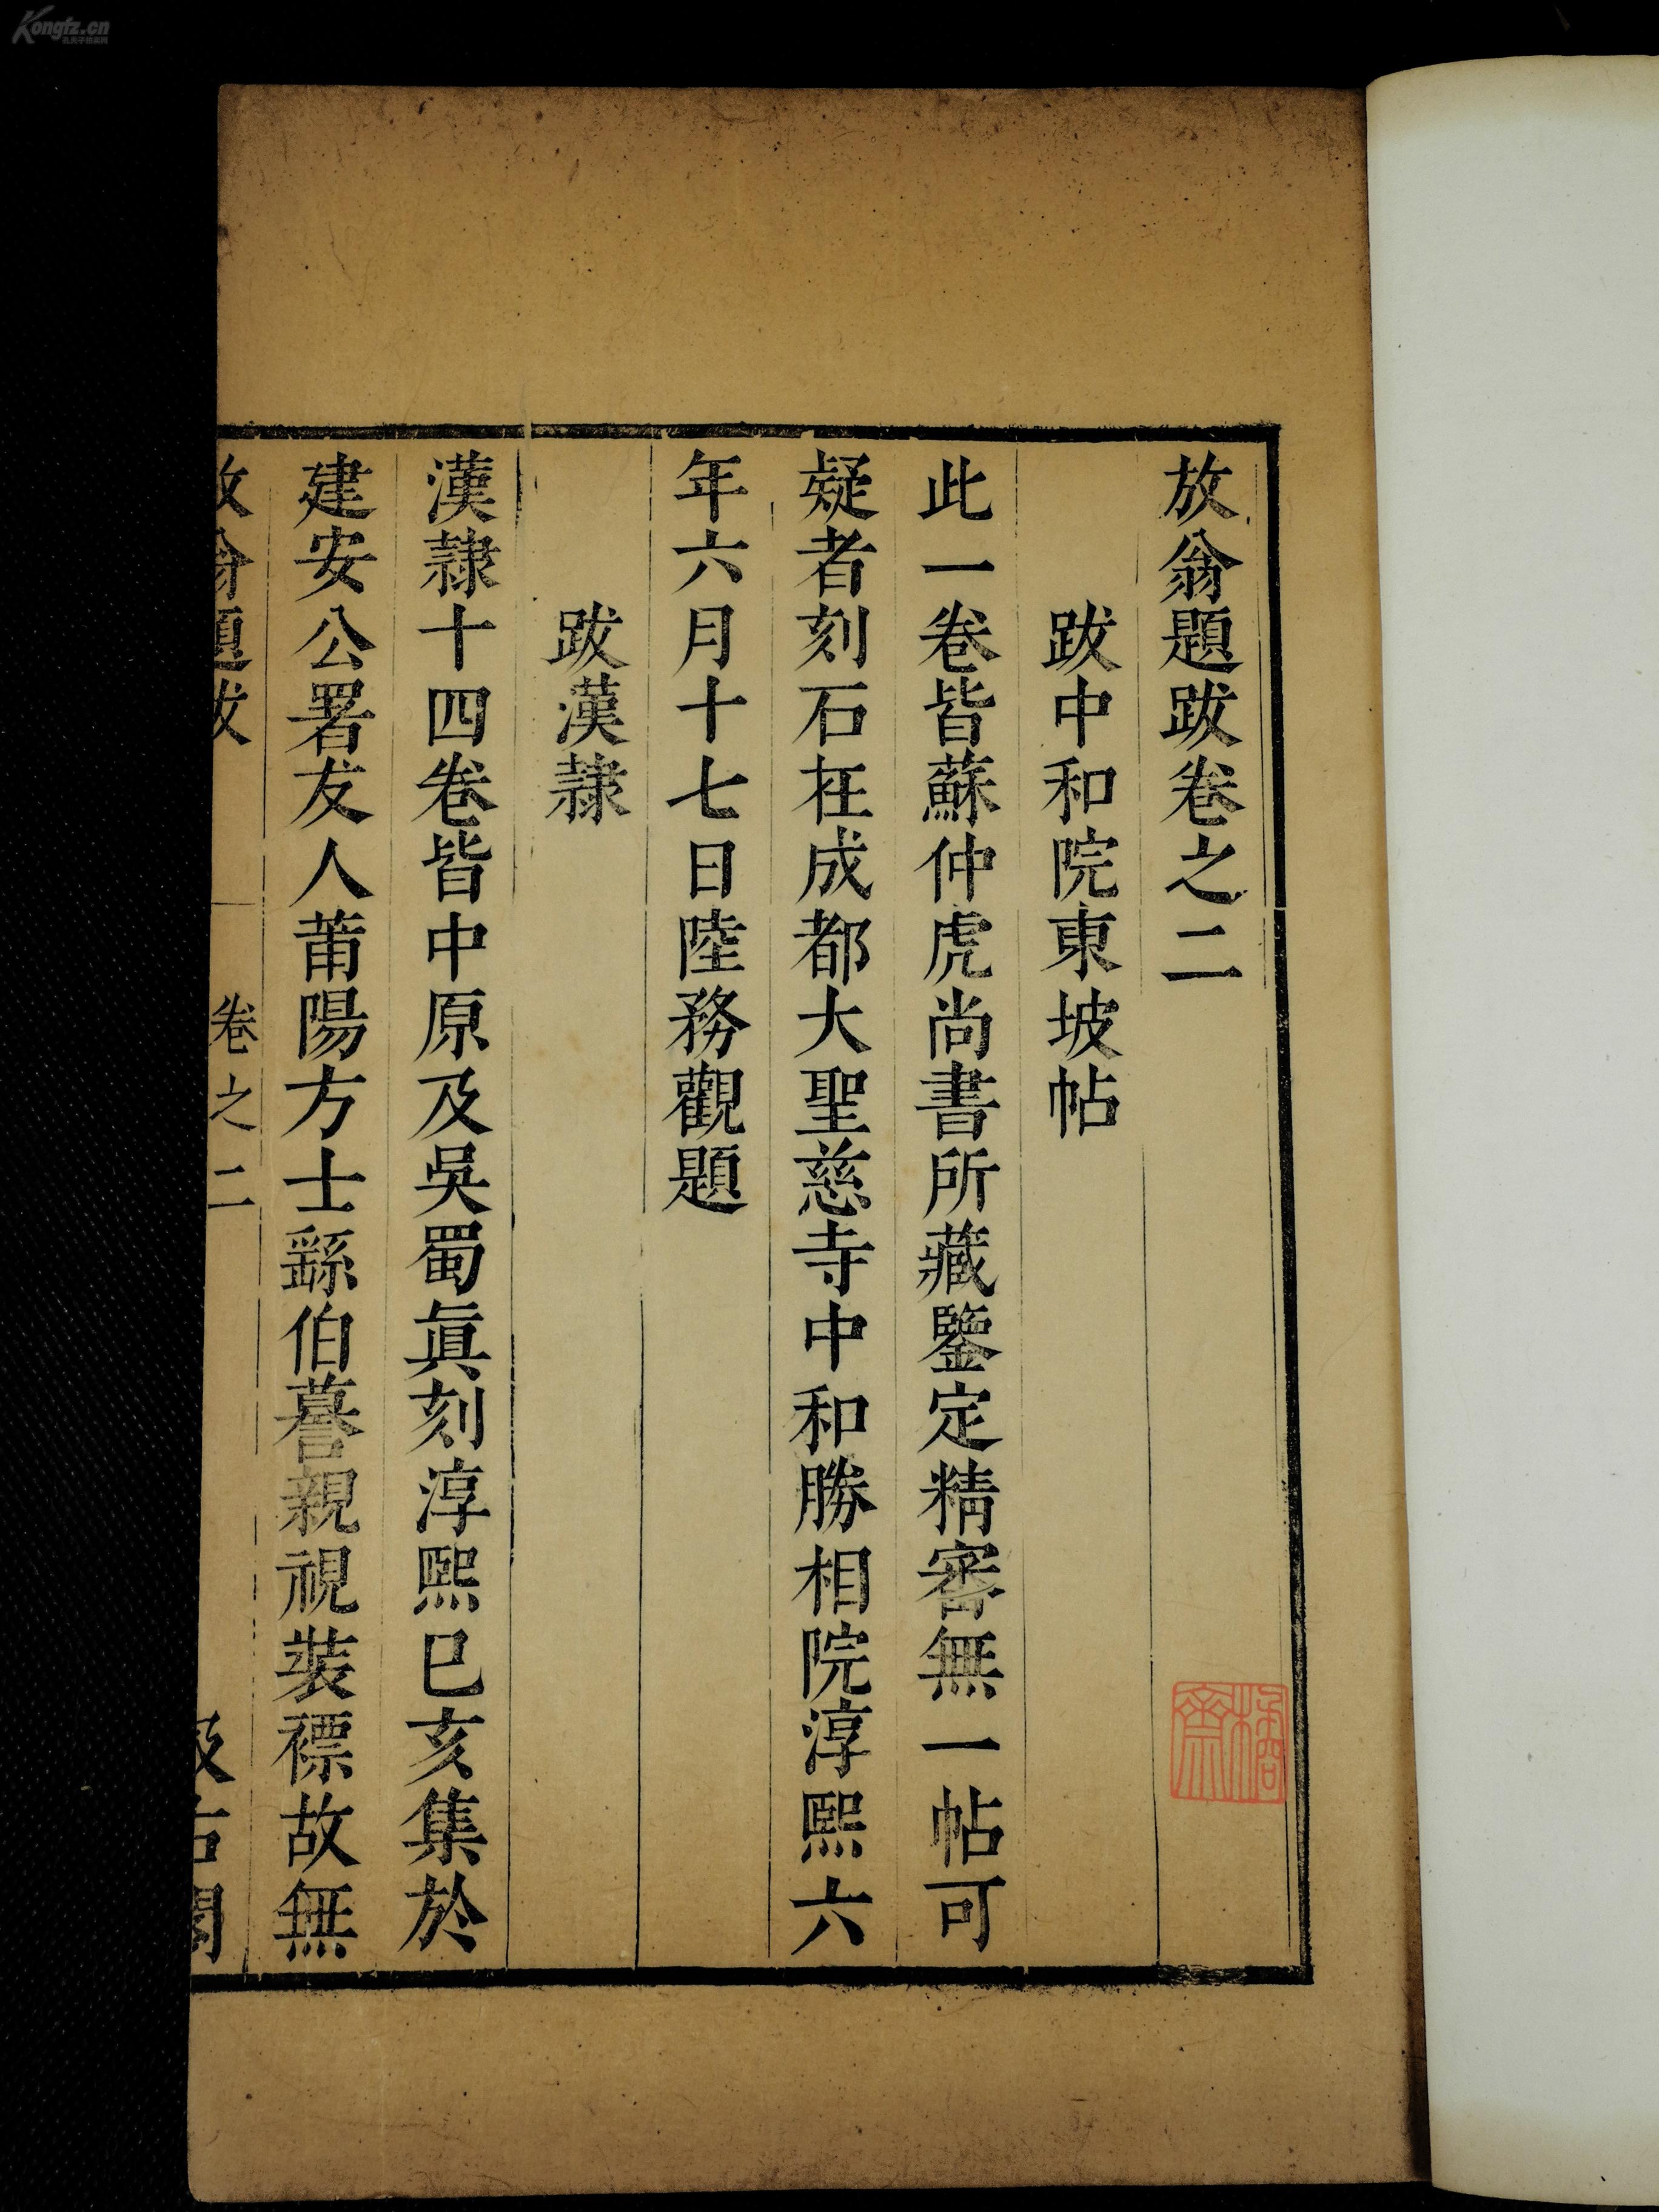 放翁題跋卷之二
跋中和院東坡帖
此一卷皆蘇仲虎尚書所藏鑒定精審無一帖可
疑者刻石在成都大聖慈寺中和勝相院淳熙六
年六月十七日陸務觀題
跋漢隸
漢隸十四卷皆中原及吳蜀眞刻淳熙巳亥集於
建安公署友人莆陽方士繇伯謩親視裝褾故無
放翁題跋
卷之二
汲古閣
Kongfz.cn